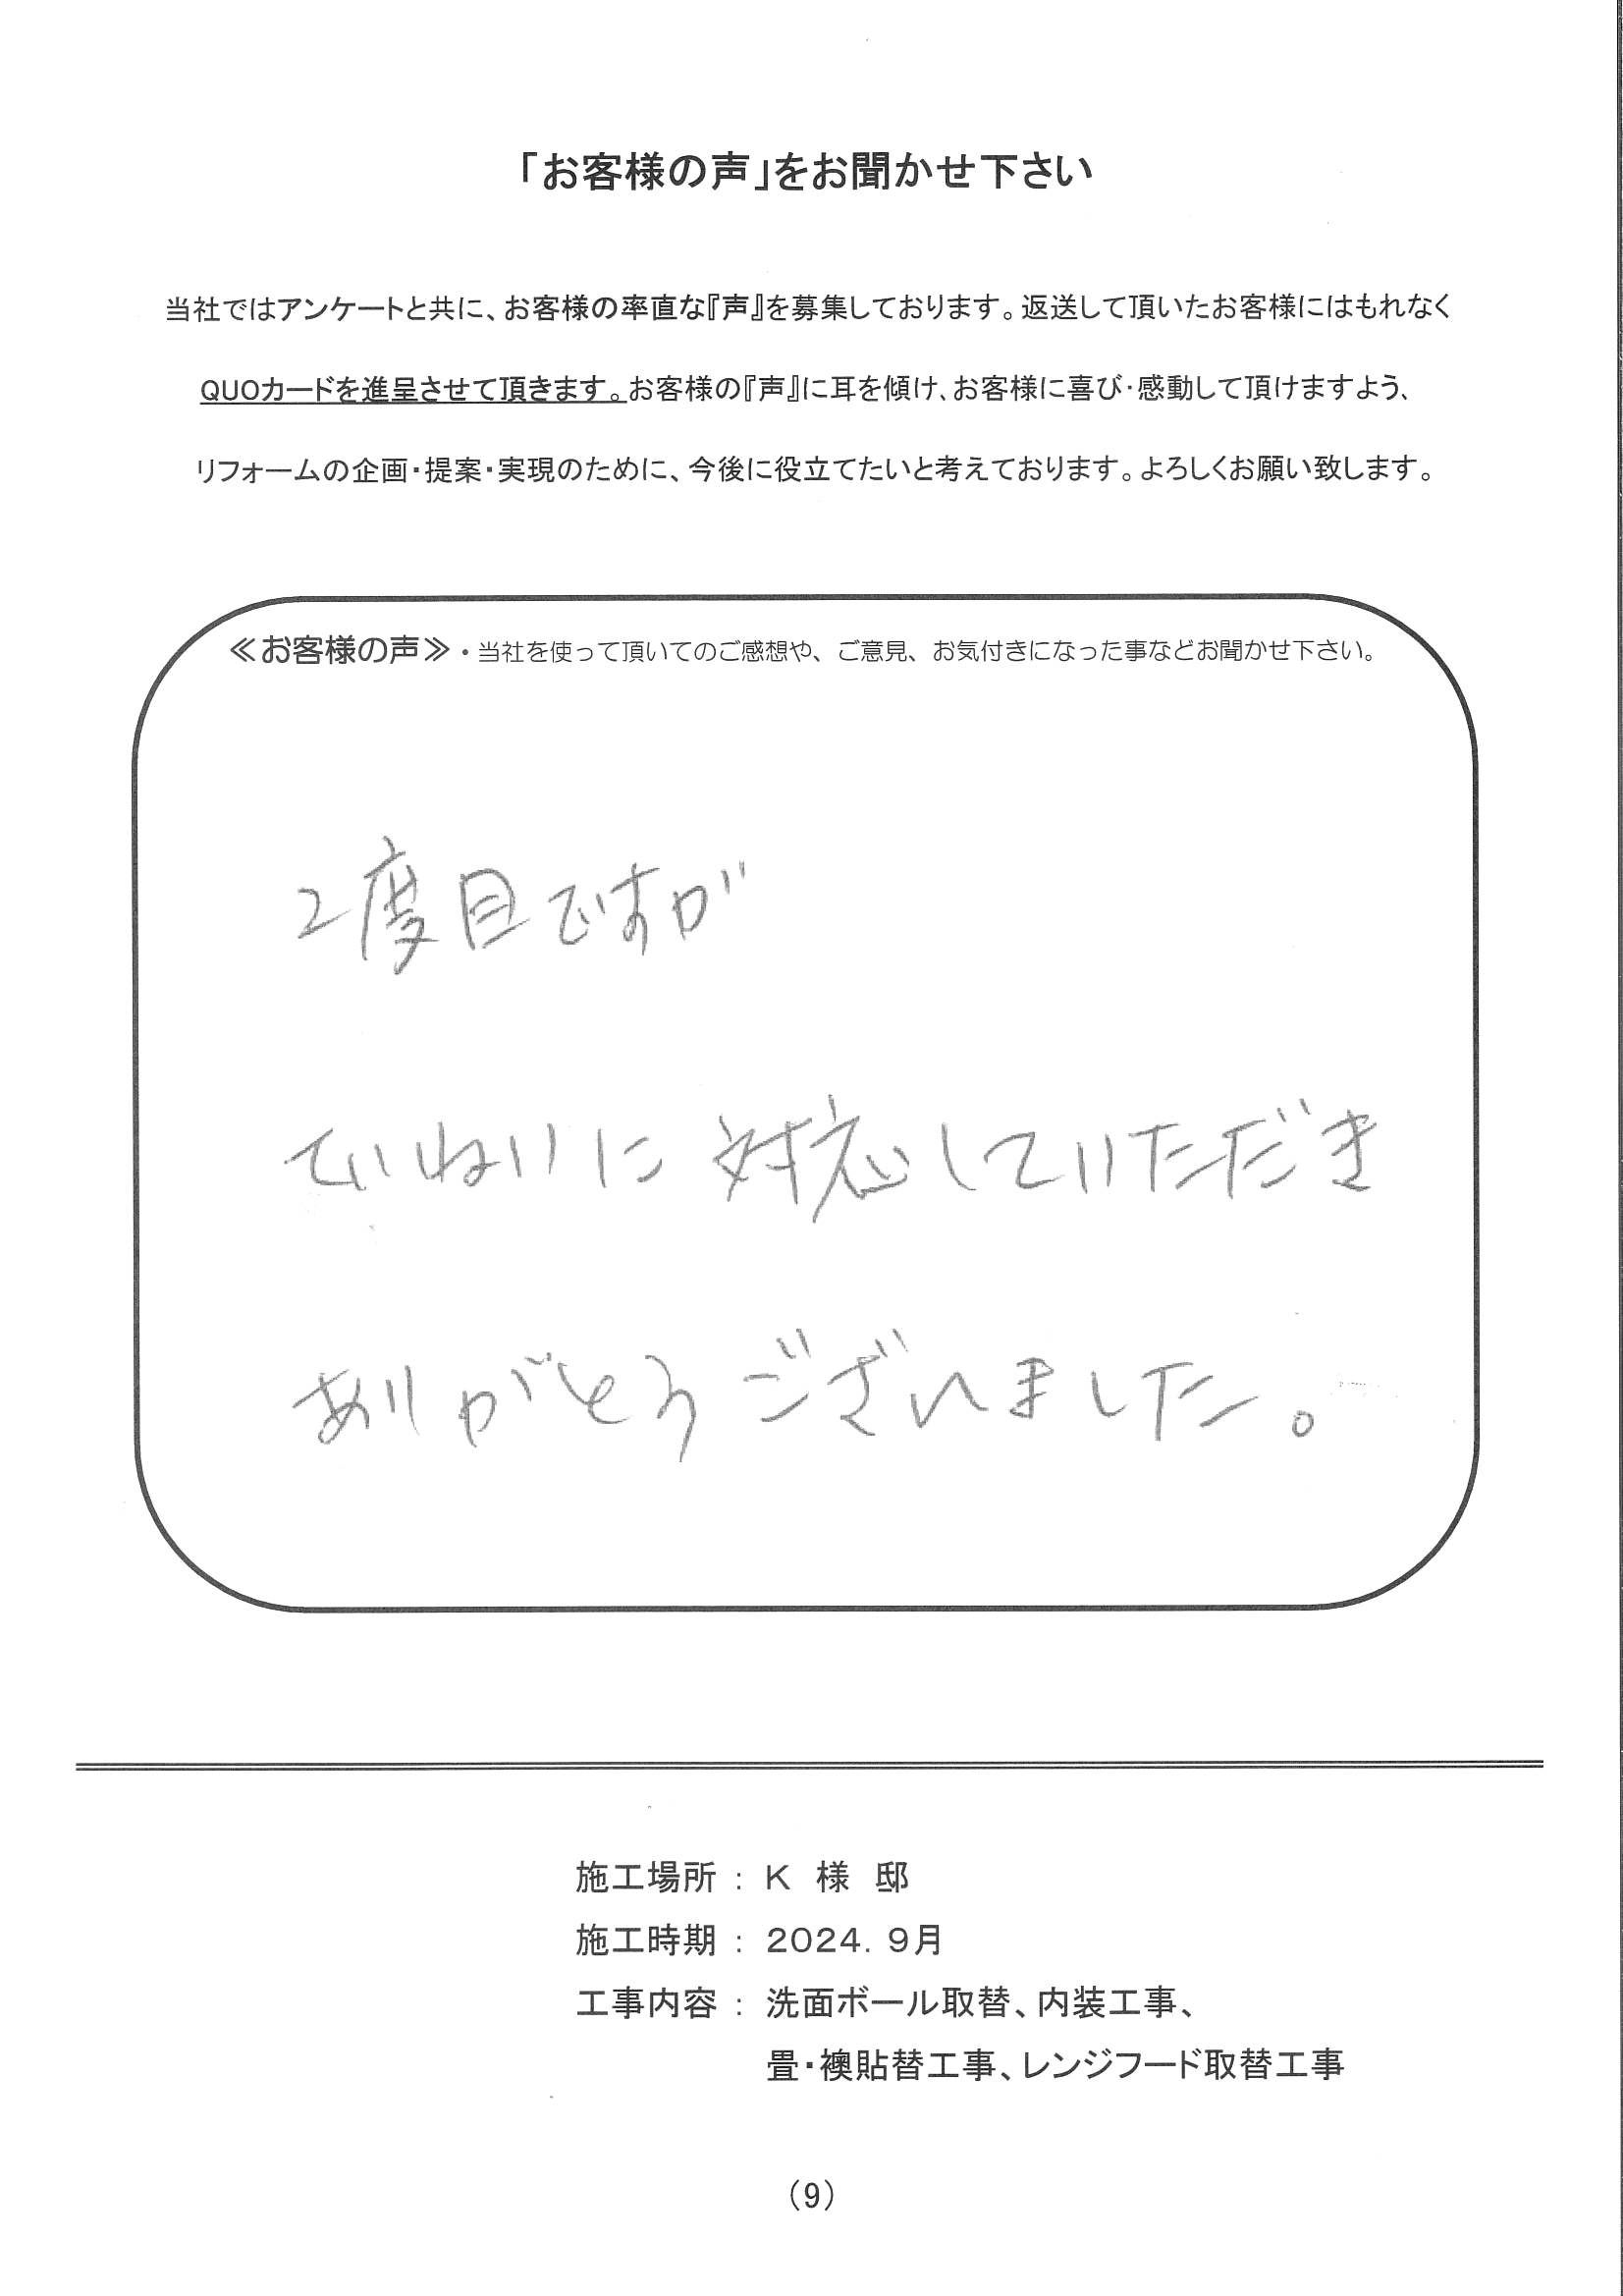 「お客様の声」をお聞かせ下さい
当社ではアンケートと共に、お客様の率直な『声』を募集しております。返送して頂いたお客様にはもれなく
QUOカードを進呈させて頂きます。お客様の『声』に耳を傾け、お客様に喜び・感動して頂けますよう、
リフォームの企画・提案・実現のために、今後に役立てたいと考えております。よろしくお願い致します。
≪お客様の声≫・当社を使って頂いてのご感想や、ご意見、お気付きになった事などお聞かせ下さい。
2度目ですが
ていねいに対応していただき
ありがとうございました。
施工場所 : K 様 邸
施工時期 : 2024.9月
工事内容 : 洗面ボール取替、内装工事、
畳・襖貼替工事、レンジフード取替工事
(9)